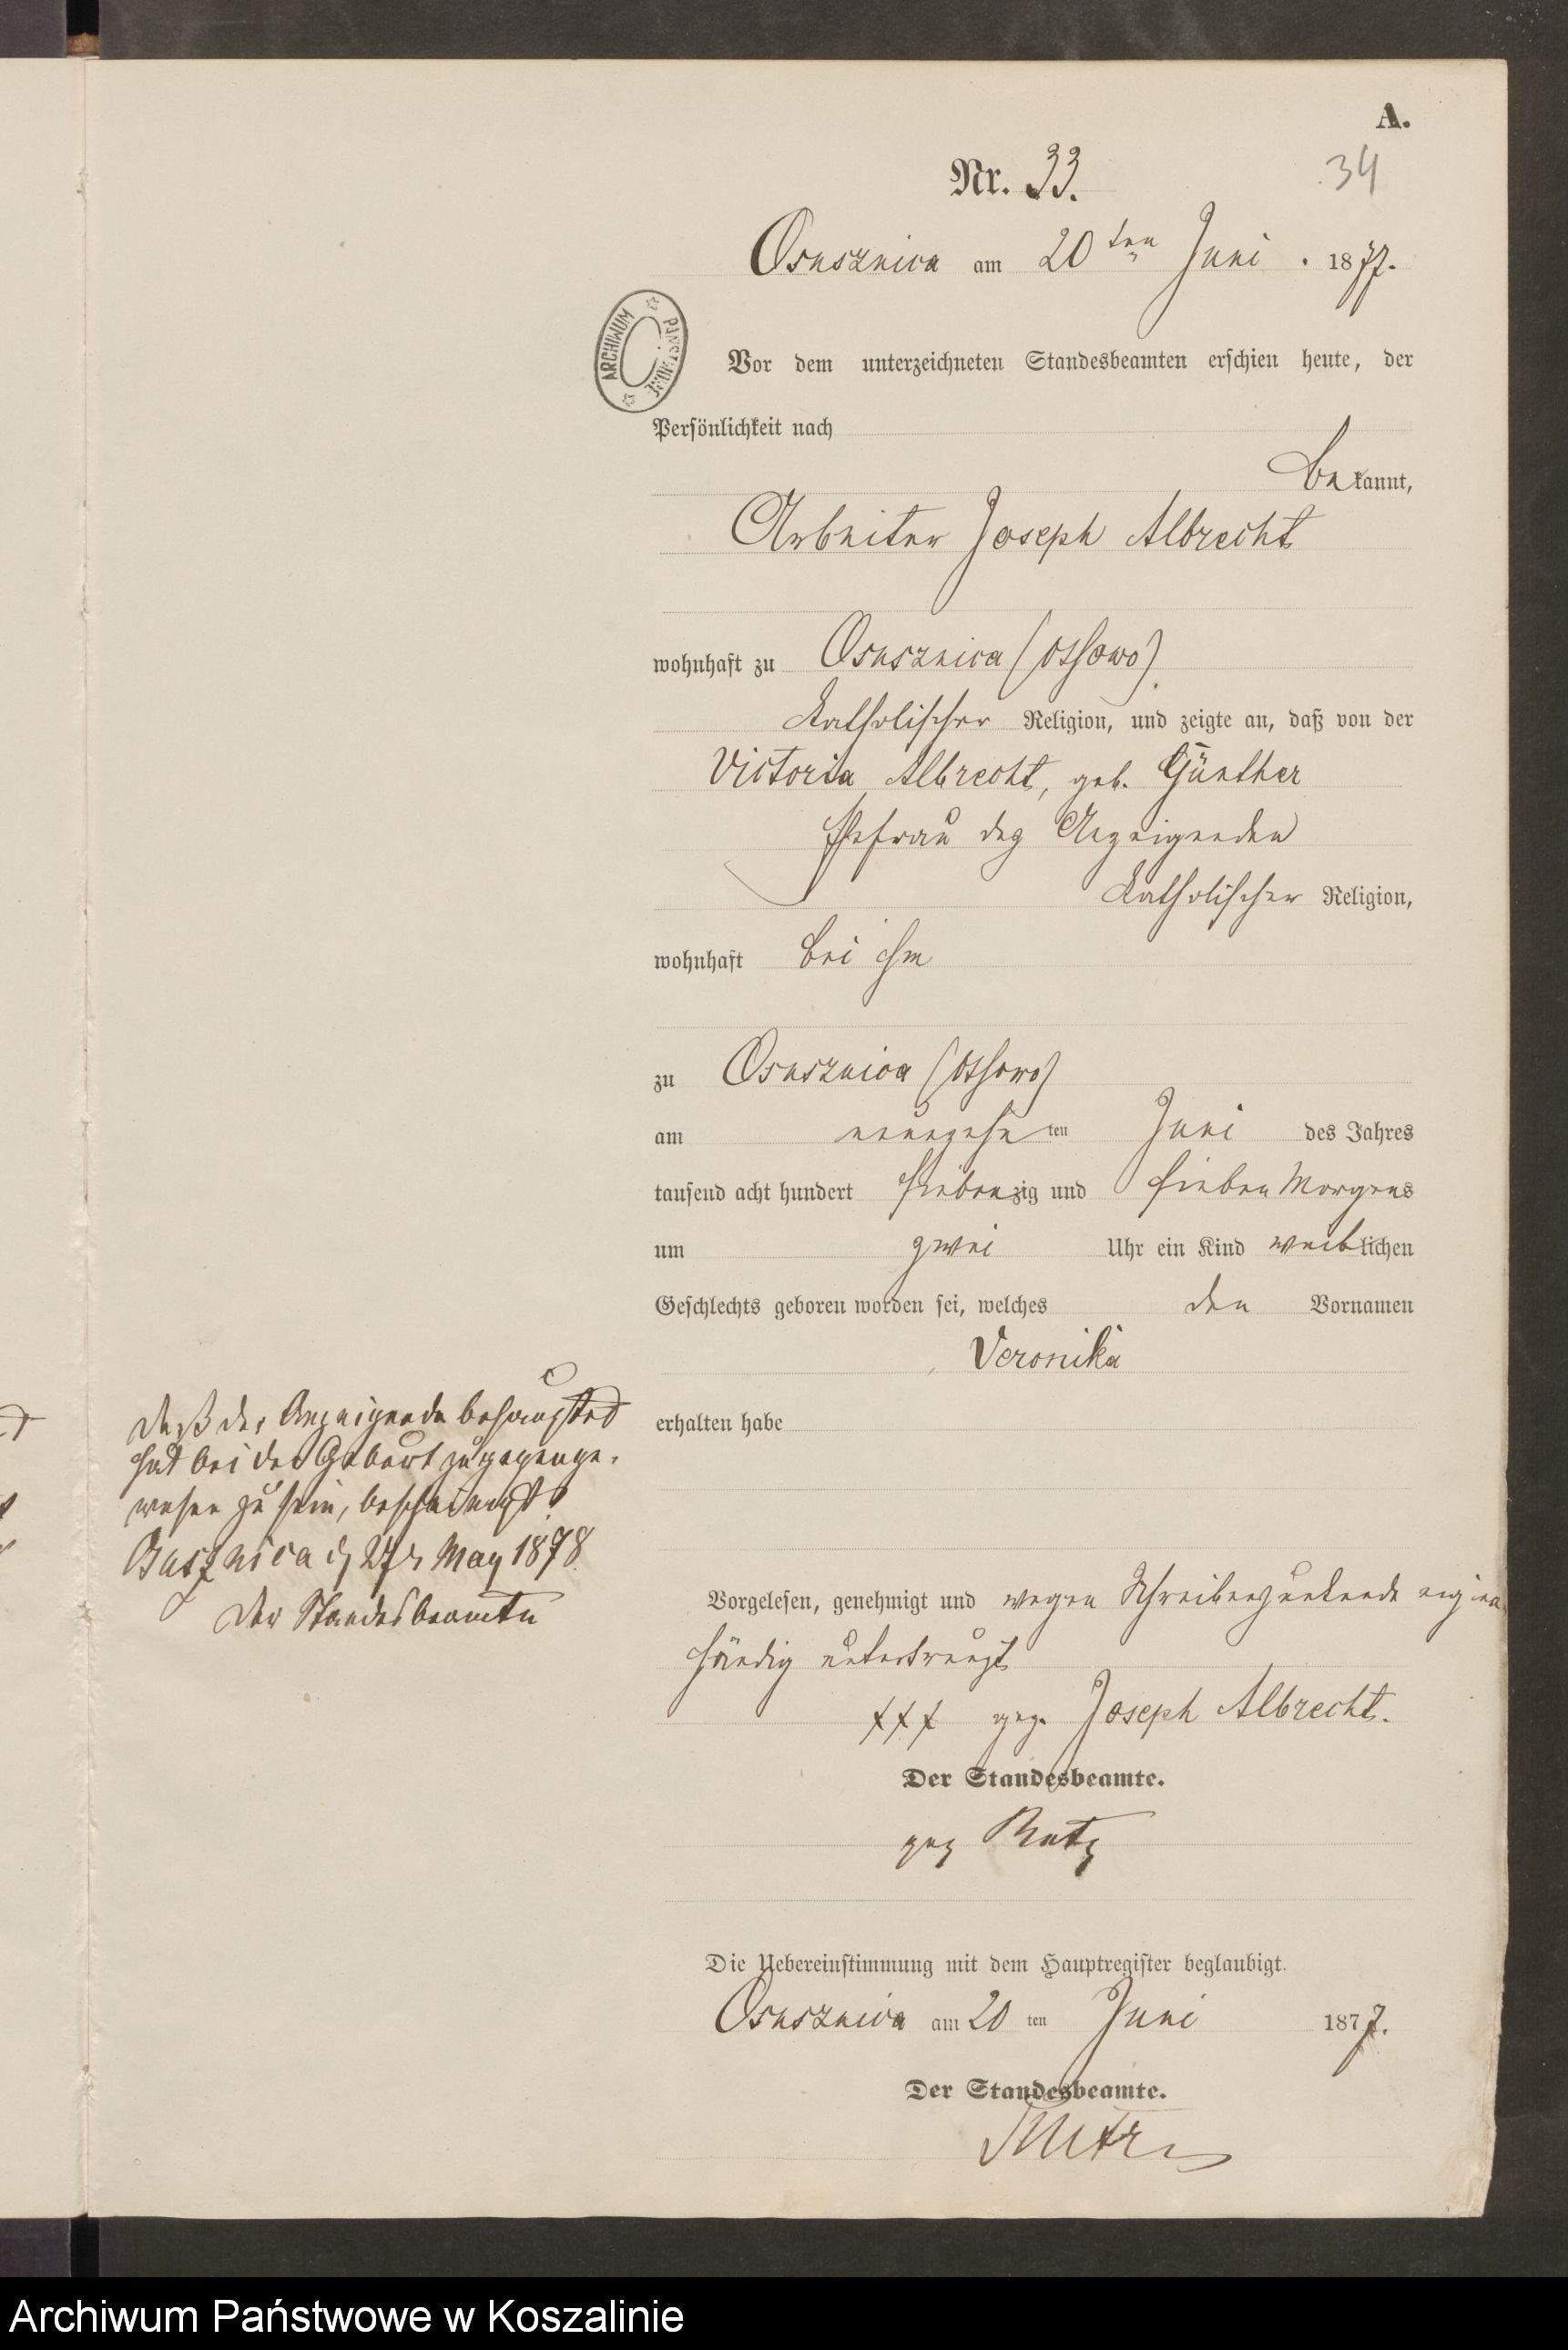 A.
Nr. 33.
34
Osusznica am 20ten Juni 1877.
ARCHIWUM PAŃSTWOWE
Vor dem unterzeichneten Standesbeamten erschien heute, der
Persönlichkeit nach
bekannt,
Arbeiter Joseph Albrecht
wohnhaft zu Osusznica (Ossowo)
katholischer Religion, und zeigte an, daß von der
Victoria Albrecht, geb. Günther
Ehefrau des Anzeigenden
katholischer Religion,
wohnhaft bei ihm
zu Osusznica (Ossowo)
am neunzehnten Juni des Jahres
tausend acht hundert siebenzig und sieben Morgens
um zwei Uhr ein Kind weiblichen
Geschlechts geboren worden sei, welches den Vornamen
Veronika
erhalten habe
Daß der Anzeigende behauptet
hat bei der Geburt zugegen ge-
wesen zu sein, bescheinigt
Osusznica d 27 May 1878.
Der Standesbeamte
Vorgelesen, genehmigt und wegen Schreibensunkunde eigen
händig unterkreuzt
+++ gez. Joseph Albrecht.
Der Standesbeamte.
gez Rutz
Die Uebereinstimmung mit dem Hauptregister beglaubigt.
Osusznica am 20ten Juni 1877.
Der Standesbeamte.
Archiwum Państwowe w Koszalinie